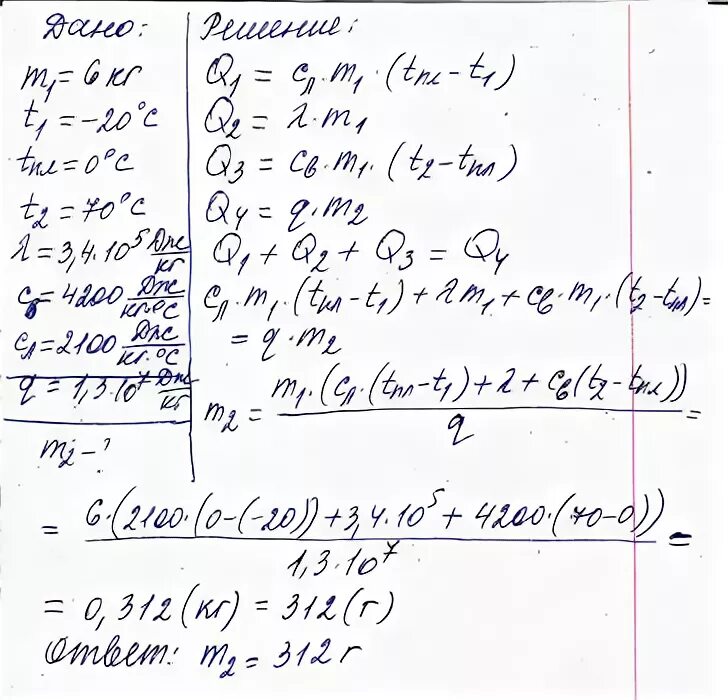 Дано:
m₁ = 6 кг
t₁ = -20°C
tпл = 0°C
t₂ = 70°C
λ = 3,4·10⁵ Дж/кг
cв = 4200 Дж/кг·°C
cл = 2100 Дж/кг·°C
q = 1,3·10⁷ Дж/кг
m₂ - ?
Решение:
Q₁ = cл·m₁·(tпл - t₁)
Q₂ = λ·m₁
Q₃ = cв·m₁·(t₂ - tпл)
Q₄ = q·m₂
Q₁ + Q₂ + Q₃ = Q₄
cл·m₁·(tпл - t₁) + λm₁ + cв·m₁·(t₂ - tпл) =
= q·m₂
m₂ = m₁·(cл·(tпл - t₁) + λ + cв(t₂ - tпл)) / q =
= 6·(2100·(0-(-20)) + 3,4·10⁵ + 4200·(70-0)) / 1,3·10⁷ =
= 0,312 (кг) = 312 (г)
Ответ: m₂ = 312 г